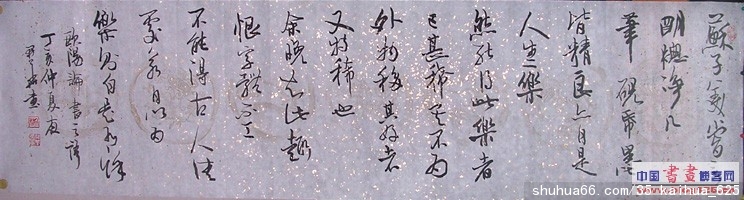 蘇子美嘗言
明牕净几
筆硯紙墨
皆精良亦自是
人生一樂
然能得此樂者
甚稀其不为
外物移其好者
又特稀也
余晚知此趣
恨字體不工
不能得古人佳
處若以为
樂则自是有餘
歐陽論書之語
丁亥仲夏夜
書
中国書畫博客网
shuhua66.com/35 kaihua_625